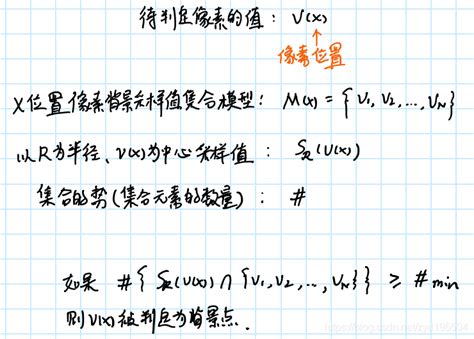 待判定像素的值：V(x)
↑
像素位置
X位置像素背景采样值集合模型：M(x) = {V₁, V₂, ..., V_N}
以R为半径、V(x)为中心采样值：S_R(V(x))
集合的势(集合元素的数量)：#
如果 #{S_R(V(x)) ∩ {V₁, V₂, ..., V_N}} ≥ #min
则V(x)被判定为背景点.